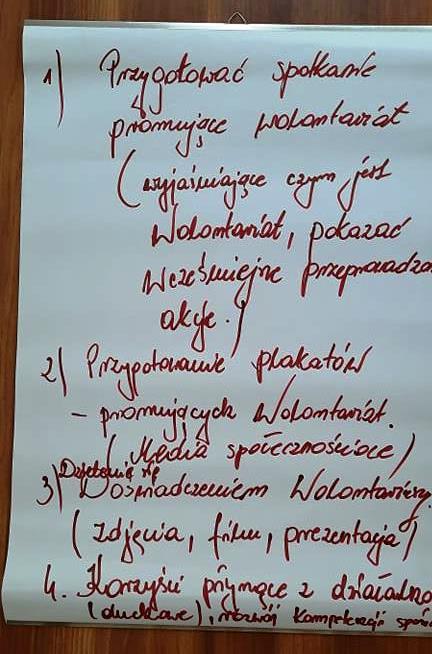 1) Przygotować spotkanie
promujące wolontariat
(wyjaśniające czym jest
Wolontariat, pokazać
wcześniejsze przeprowadzo
akcje.)
2) Przygotowanie plakatów
- promujących Wolontariat.
(Media społecznościowe)
Dzielenie się
3) Doświadczeniem Wolontariuszy.
(zdjęcia, film, prezentacja)
4. Korzyści płynące z działalno
(duchowe), rozwój kompetencji społe